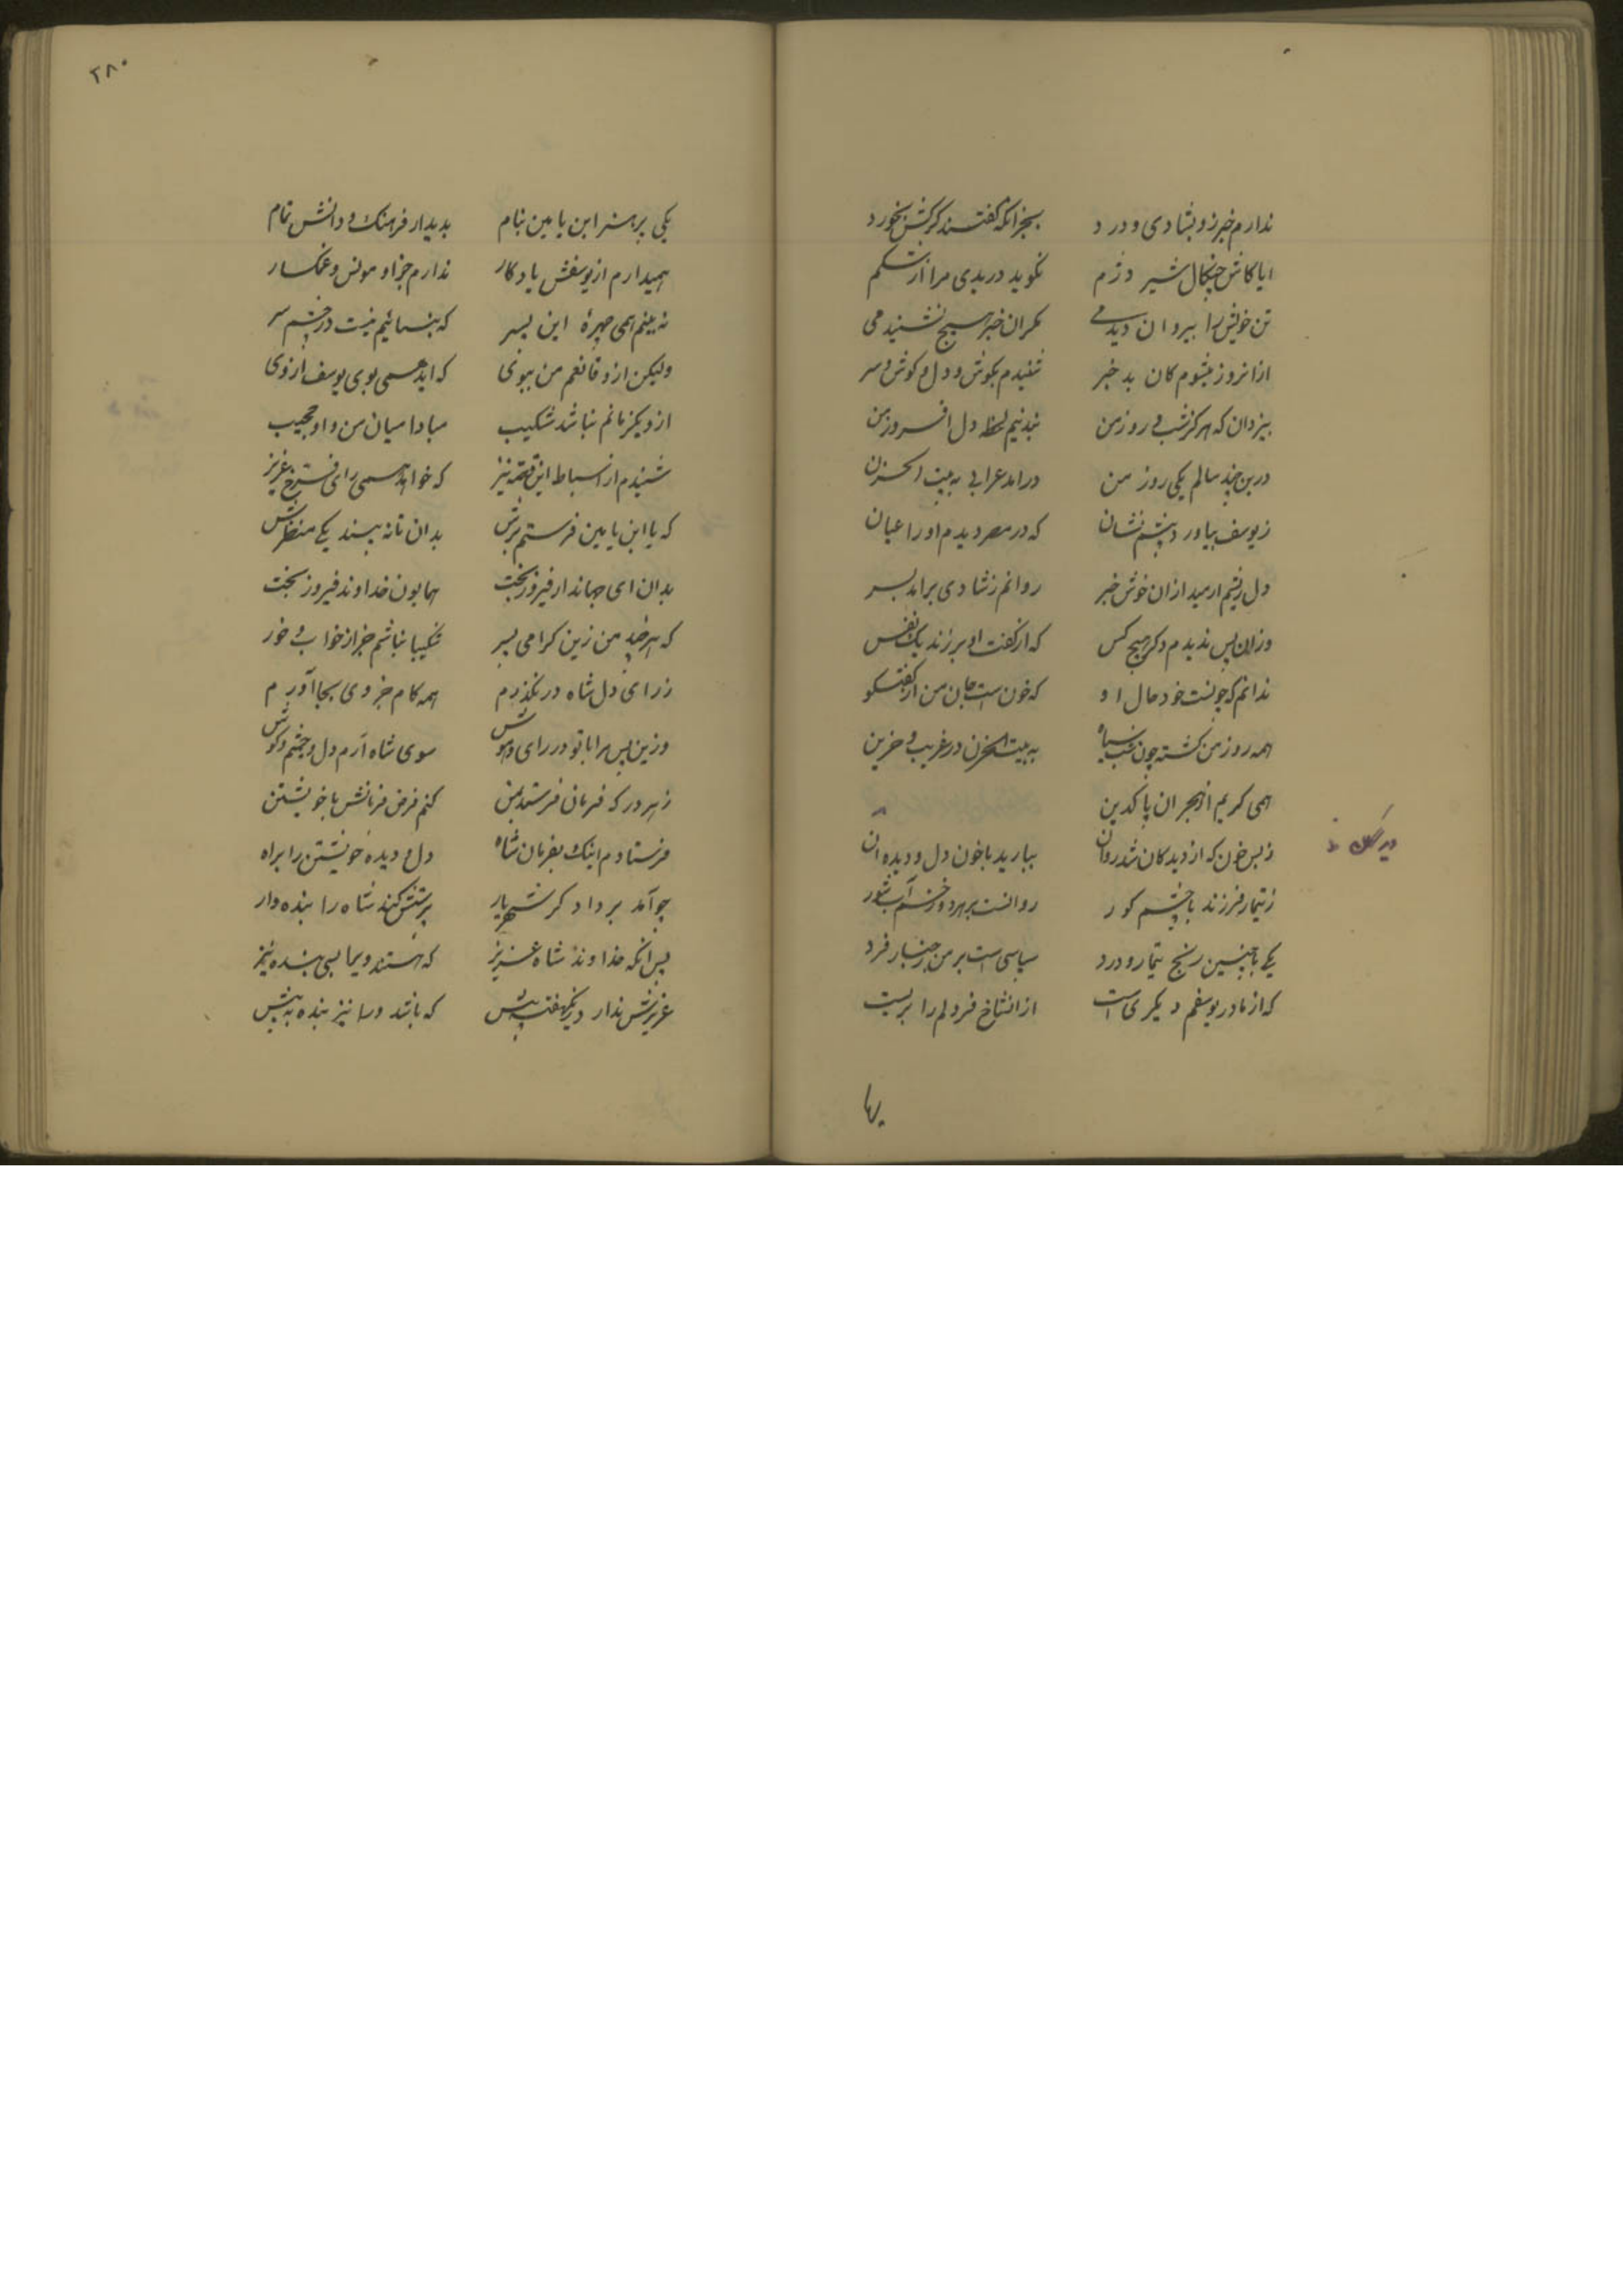 ندارم خبر زو بشادی و درد بجز آنکه گفتند گرگش بخورد
ایا کاش چنگال شیر دژم بدریدی مرا از شکم
تن خویش را بیروان دیدمی مگر آن خبر هیچ نشنیدمی
از آنروز میشوم کان بد خبر شنیدم بگوش و دل و گوش و سر
بیزدان که هرگز شب و روز من ندیدم لحظ دل افروز من
درین چند سالم یکی روز من درآمد عرابی به بیت الحزن
ز یوسف بیاورد پیشم نشان که در مصر دیدم او را عیان
دل ریشم ارمید ازان خوش خبر روانم ز شادی برآمد بسر
وزان پس ندیدم دگر هیچ کس که از گفت او برزند یک نفس
ندانم که چونست خود حال او که خون است جان من از گفتگو
همه روز من گشته چون شب سیاه به بیت الحزن در غریب و حزین
همی گریم از هجر ان پاکدین
ز بس خون که از دیدگان شد روان ببارید با خون دل و دیده ان
ز تیمار فرزند با چشم کور روانست بر هر دو رخسم آب شور
یکی با چنین رنج تیمار و درد سپاسی است بر من ز جبار فرد
که از مادر یوسفم دیگری است از انشاخ فرد لم را بریست
یها
۲۸۰
یکی پر هنر ابن یامین بنام بدیدار فرهنگ و دانش تمام
همیدارم از یوسفش یادگار ندارم جز او مونس و غمگسار
نه بینم همی چهرهٔ این پسر که بینائیم نیست در چشم سر
ولیکن ازو قانعم من ببوی که آید همی بوی یوسف ازوی
ازو یکزمانم نباشد شکیب مبادا میان من و او حجیب
شنیدم از اسباط این قصه نیز که خواهد همی رای فرخ عزیز
که یا ابن یامین فرستم برش بدان تا نه بیند یکی منظرش
بدان ای جهاندار فیروزبخت همایون خداوند فیروز بخت
که هر چند من زین گرامی پسر شکیبا نباشم جز از خواب و خور
ز رای دل شاه در نگذرم همه کام خروی بجا آورم
وزین پس مرا با تو در رای و هوش سوی شاه آرم دل و چشم و گوش
ز هر در که فرمان فرستد بمن کنم فرض فرمانش با خویشتن
فرستادم اینک بفرمان شاه دل و دیدهٔ خویشتن را براه
چو آمد بر دادگر شهریار پرستش کند شاه را بنده وار
پس آنکه خداوند شاه عزیز که هستند ویرا بسی بنده نیز
عزیزش ندارد یکهفته بیش که باشد ورا نیز بنده به پیش